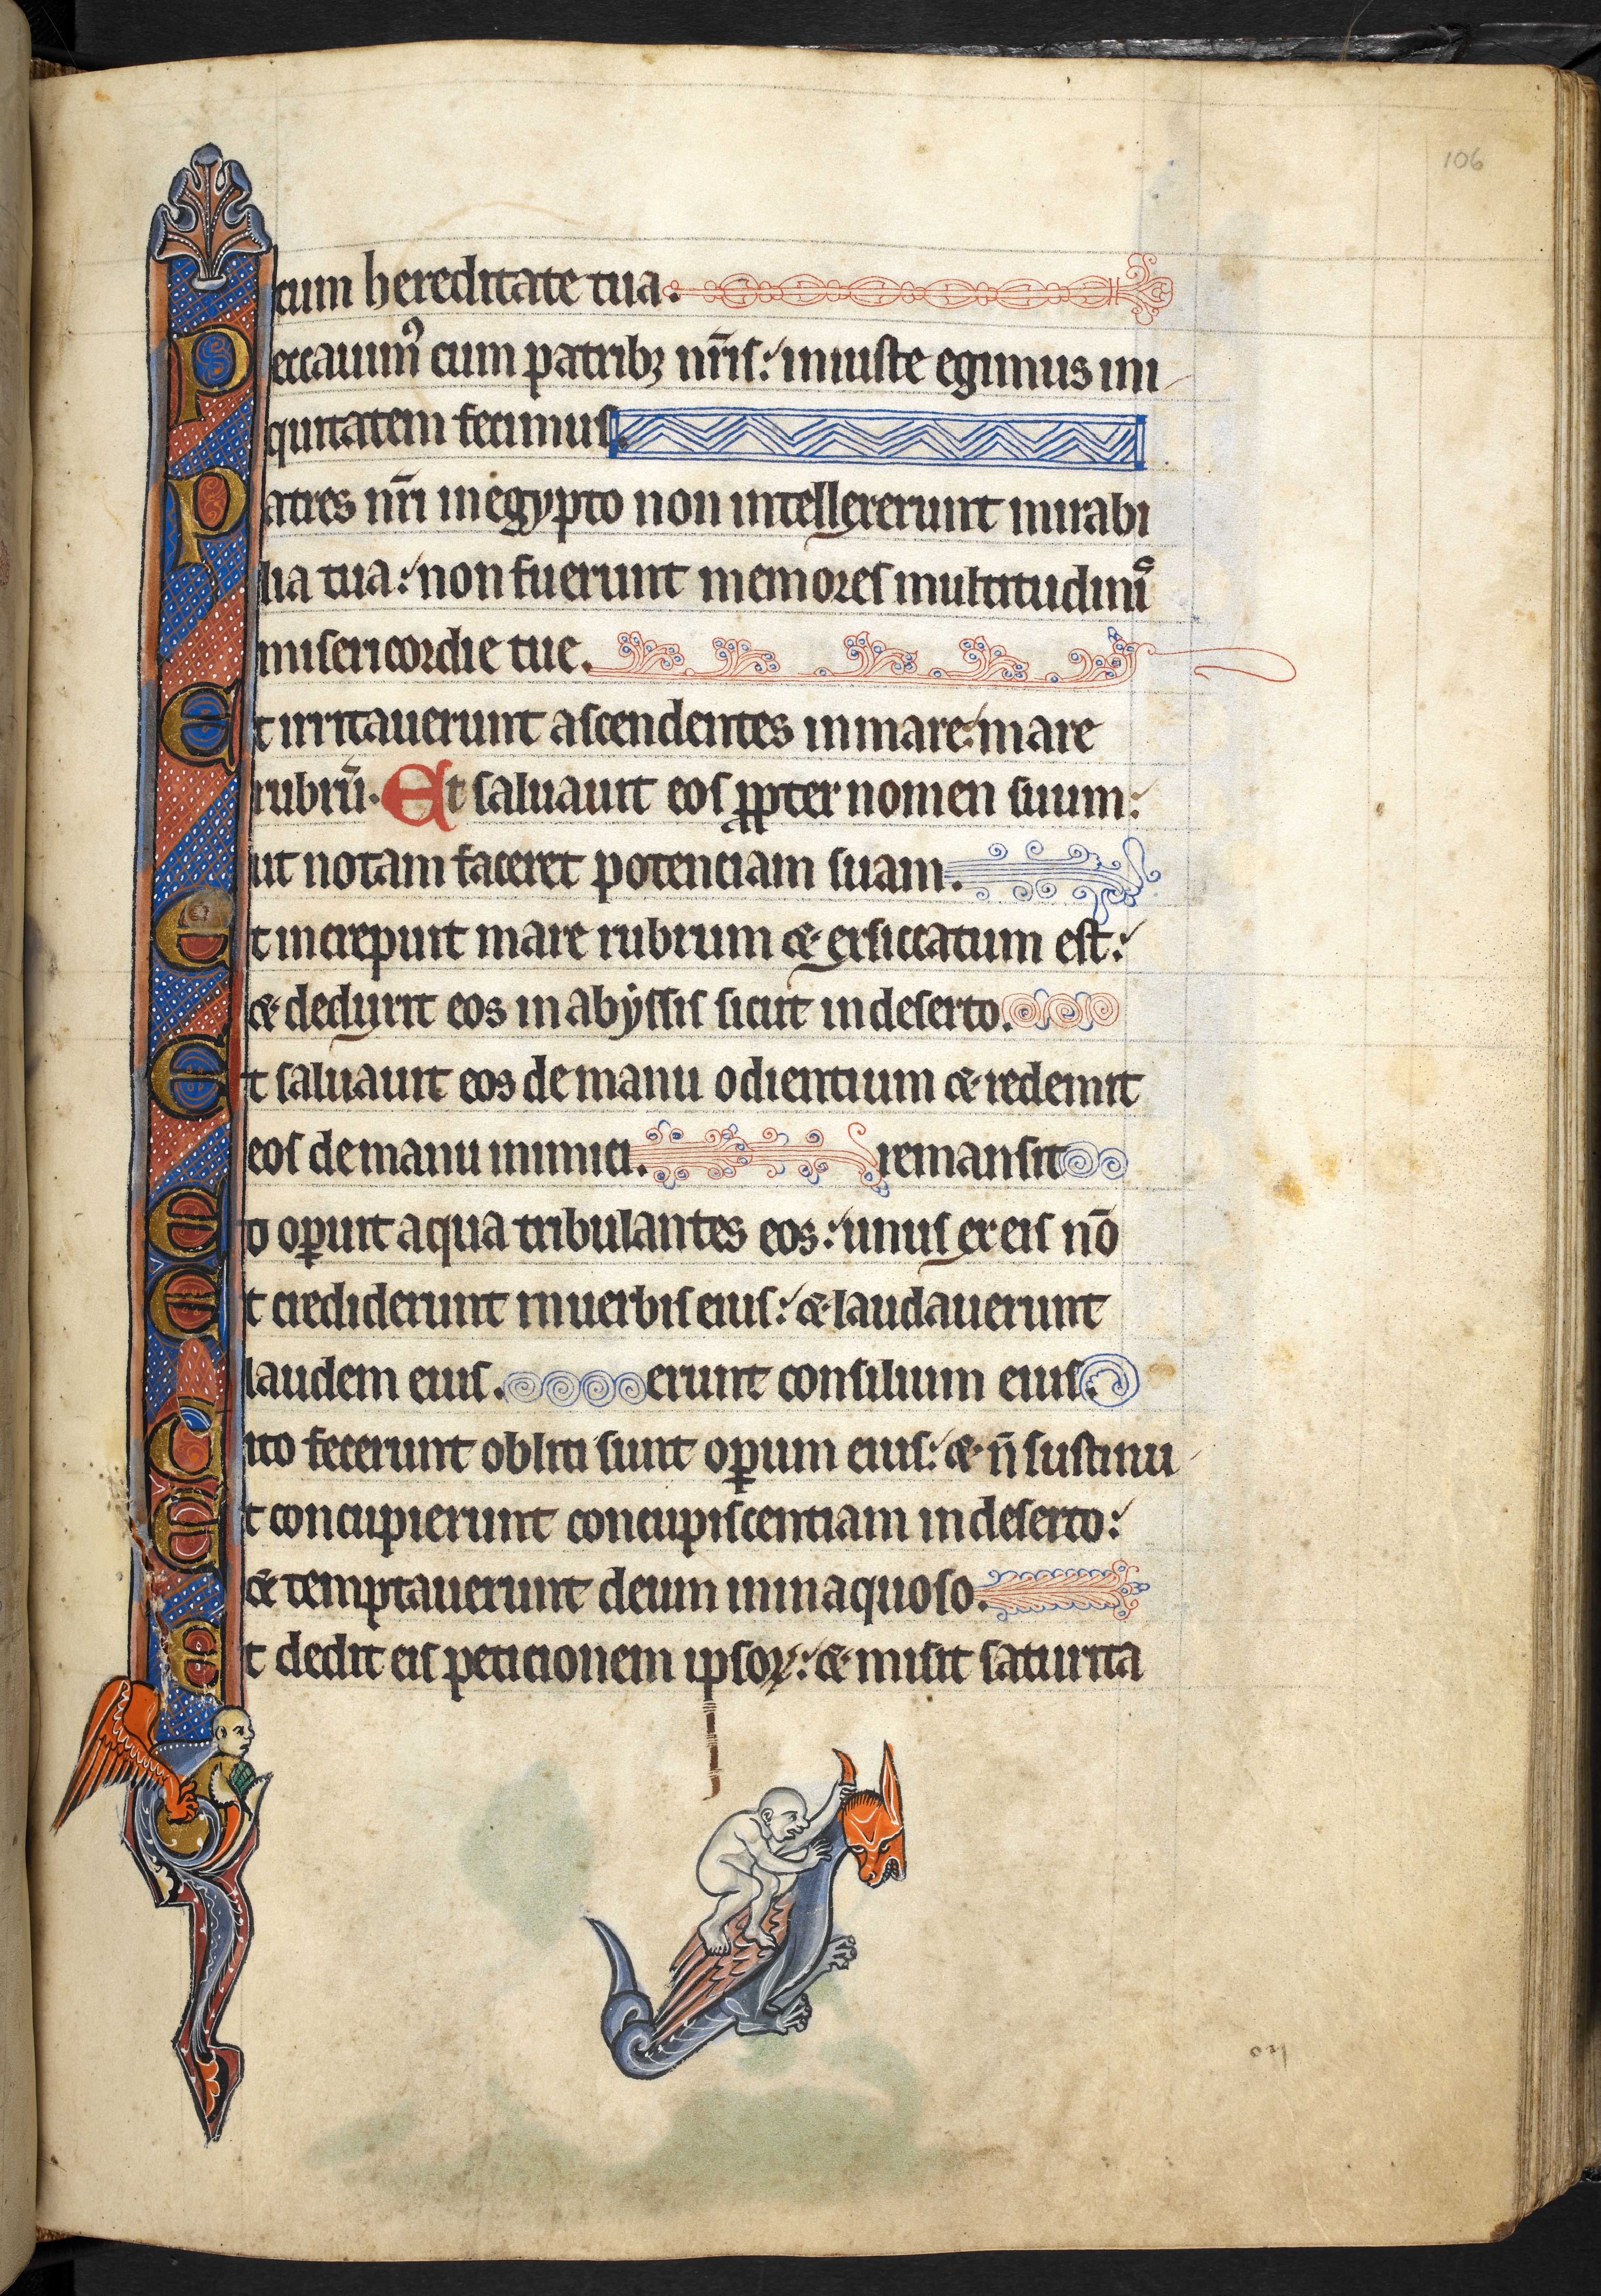 106
cum hereditate tua.
Peccauimꝰ cum patribꝫ nr̄is: iniuste egimus ini
quitatem fecimus.
Patres nr̄i in egypto non intellexerunt mirabi
lia tua: non fuerunt memores multitudinis
misericordie tue.
Et irritauerunt ascendentes in mare: mare
rubrū. Et saluauit eos ꝓpter nomen suum:
ut notam faceret potenciam suam.
Et increpuit mare rubrum & exsiccatum est:
& deduxit eos in abyssis sicut in deserto.
Et saluauit eos de manu odientium & redemit
eos de manu inimici. remansit
Et oꝑuit aqua tribulantes eos: unus ex eis nō
Et crediderunt in uerbis eius: & laudauerunt
laudem eius. erunt consilium eius.
Cito fecerunt obliti sunt oꝑum eius: & n̄ sustinu
Et concupierunt concupiscentiam in deserto:
& temptauerunt deum in inaquoso.
Et dedit eis peticionem ipsoꝝ: & misit saturita